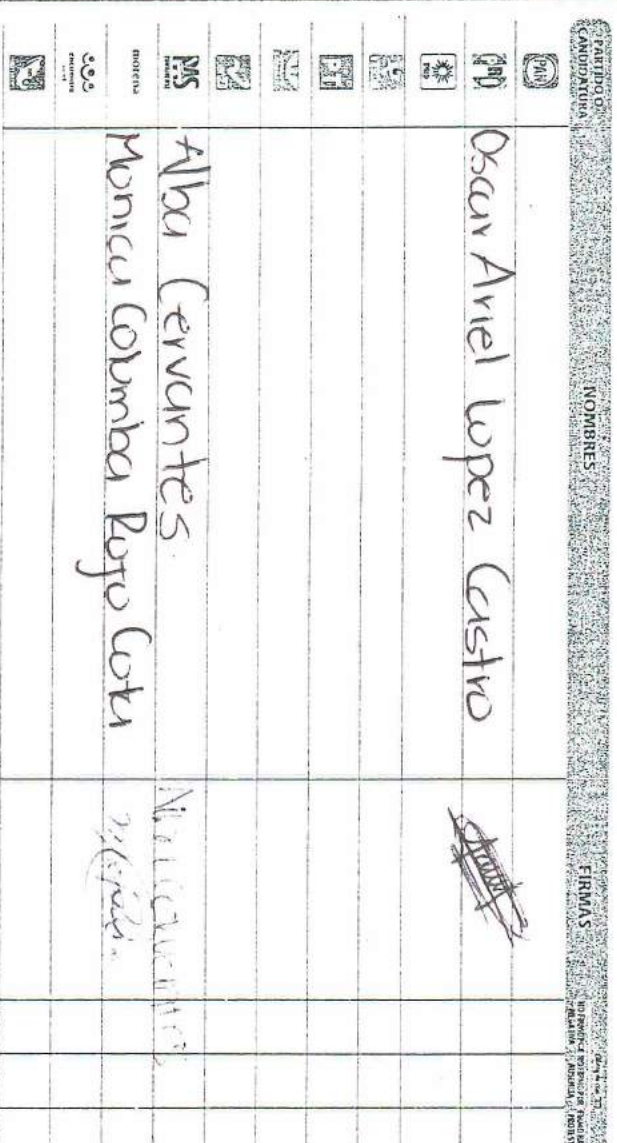 PARTIDO O CANDIDATURA NOMBRES FIRMAS
PAN
PRI Oscar Ariel Lopez Castro
PRD
PT
PAS Alba Cervantes
morena Monica Columba Rojo Cota
encuentro